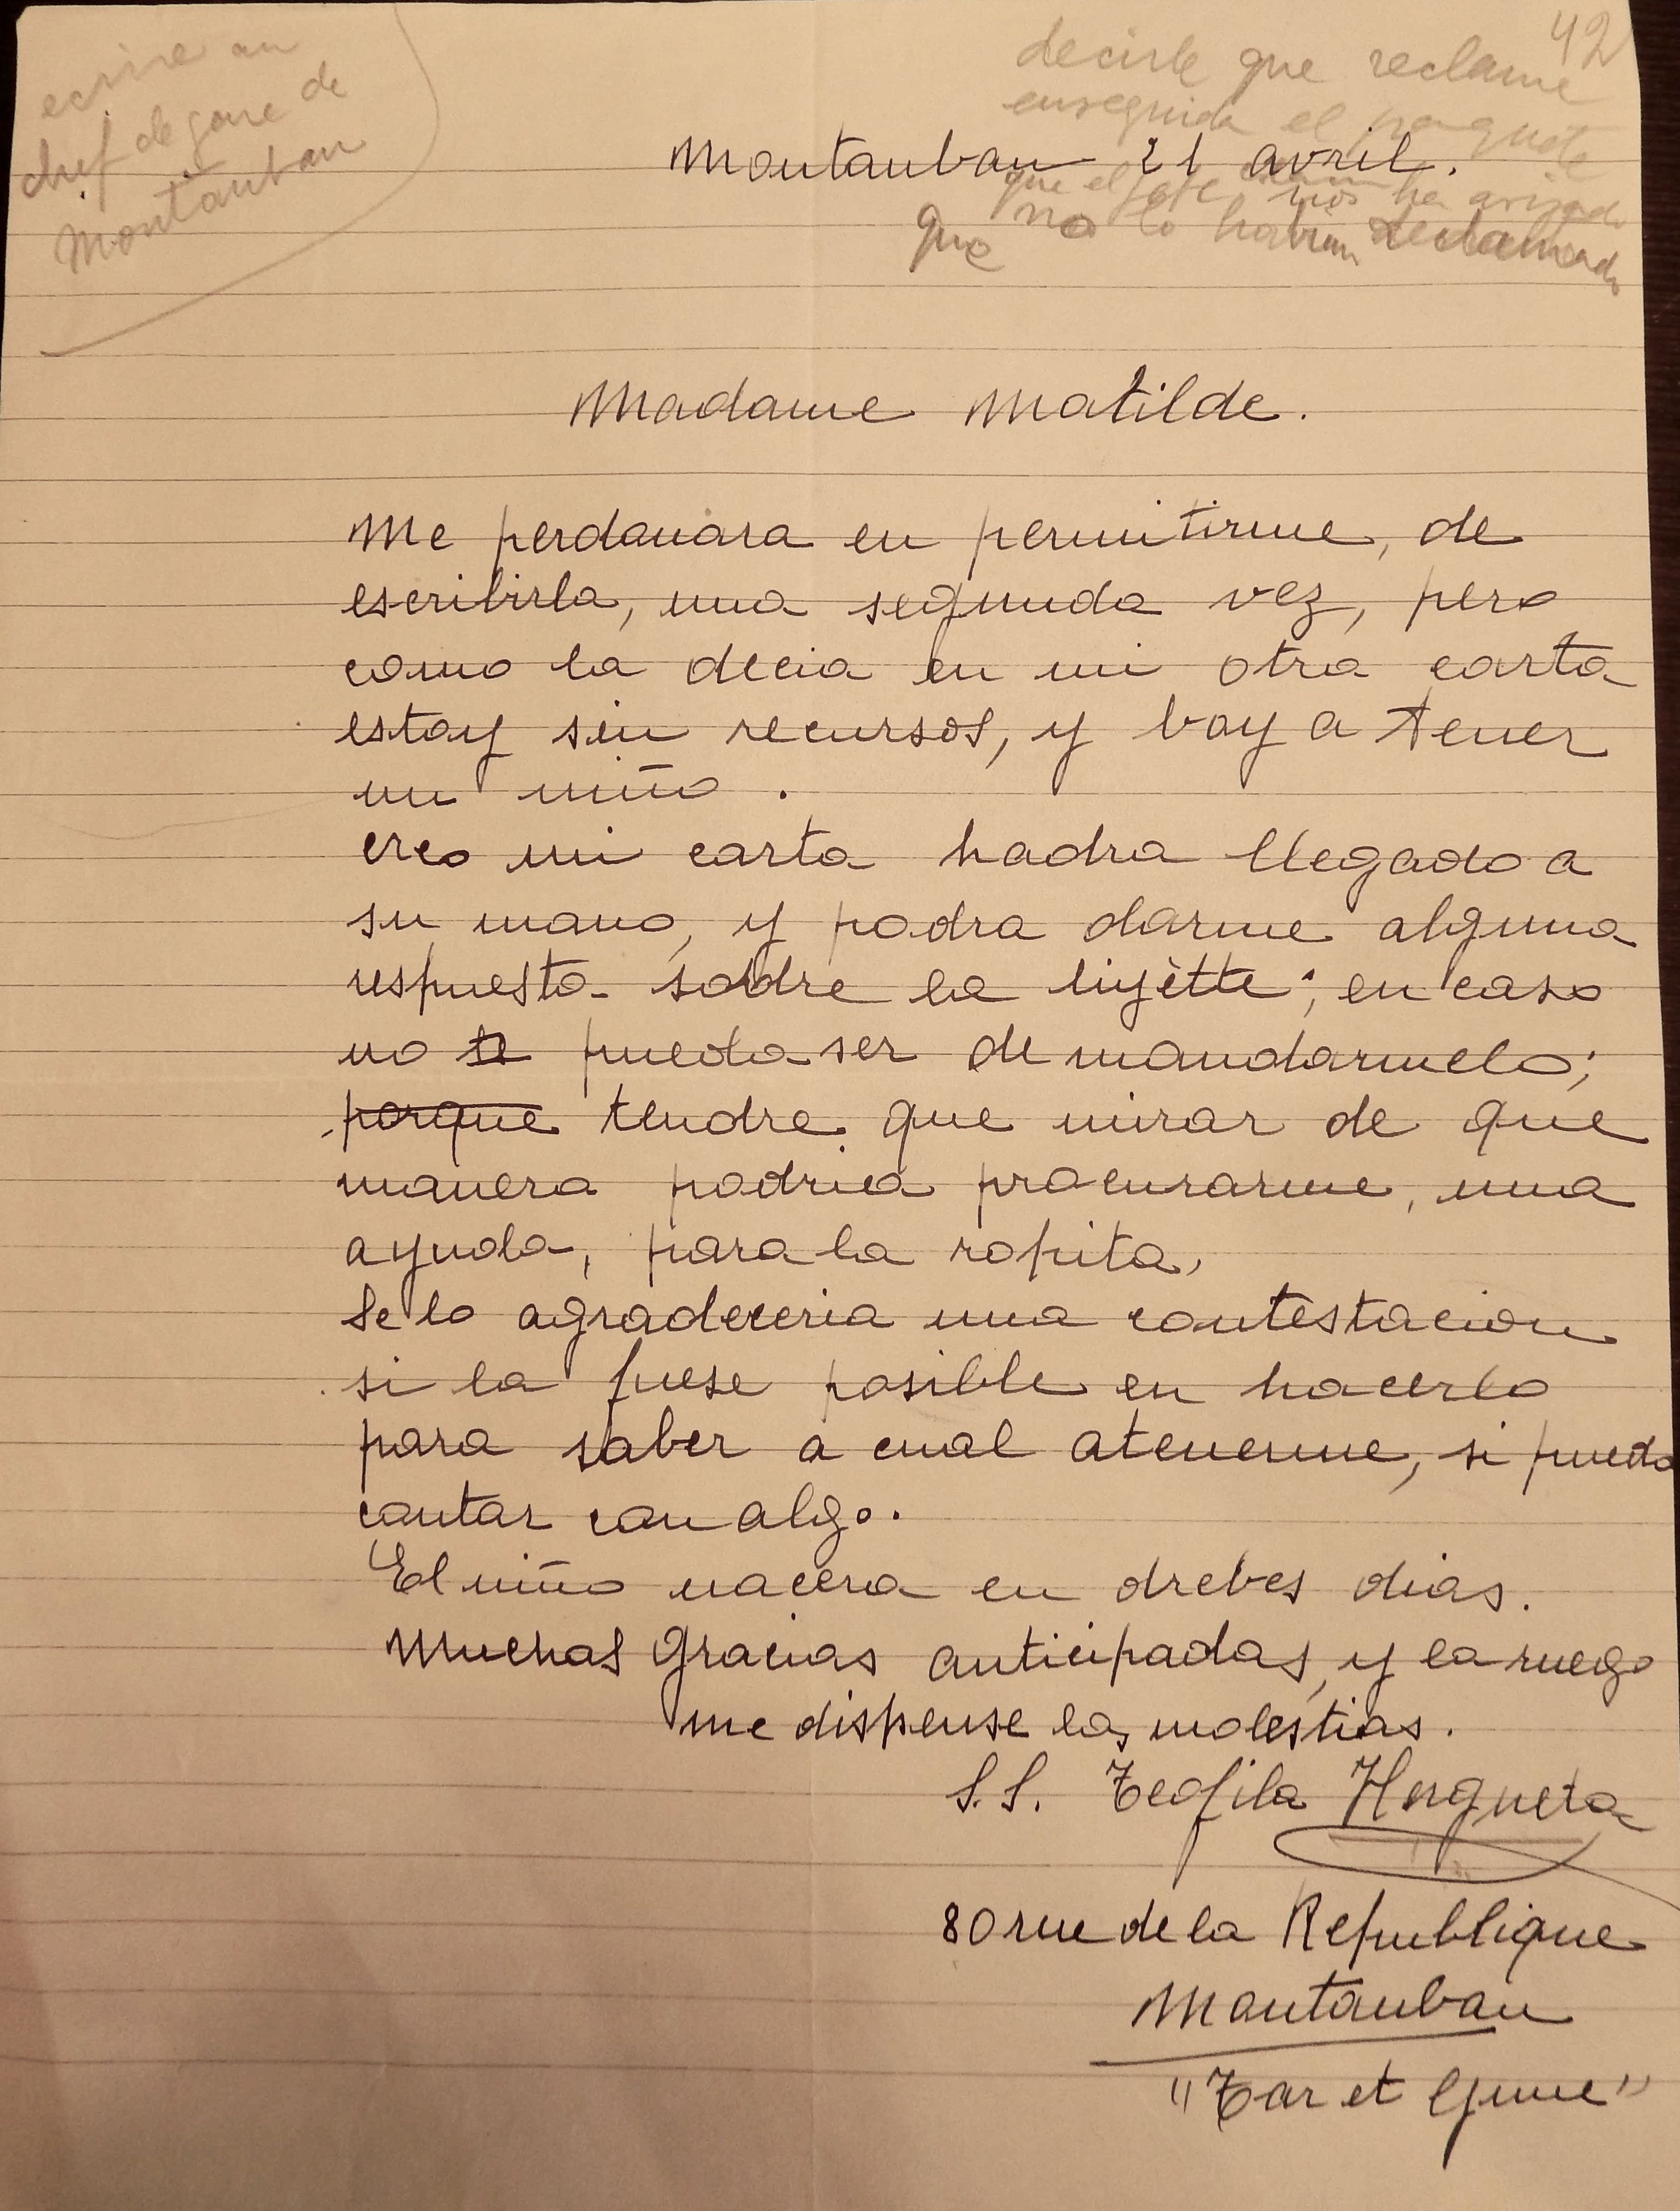 ecrire au
chef de gare de
Montauban
42
decirle que reclame
enseguida el paquete
Montauban 21 avril.
que el jefe nos ha avisado
que no lo habian reclamado
Madame Matilde.
Me perdanara en permitirme, de
escribirla, una segunda vez, pero
como la decia en mi otra carta
estoy sin recursos, y boy a tener
un niño.
creo mi carta hadra llegado a
su mano, y podra darme alguna
respuesta sobre la liyètte; en caso
no te pueda ser de mandarmelo;
porque tendre que mirar de que
manera podria procurarme, una
ayuda, para la ropita,
Se lo agradeceria una contestacion
si la fuese posible en hacerlo
para saber a cual atenerme, si puedo
contar con algo.
El niño nacera en drebes dias.
Muchas gracias anticipadas, y la ruego
me dispense las molestias.
S.S. Teofila Hergueta
80 rue de la Republique
Montauban
"Tar et Garne"